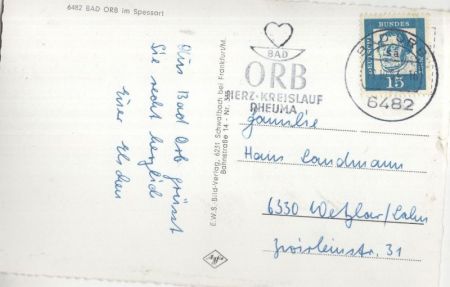 6482 BAD ORB im Spessart
Aus Bad Orb grüsst
Sie recht herzlich
E.W.S. Bild-Verlag, 6231 Schwalbach bei Frankfurt/M.
Bahnstraße 14 - Nr.
BAD
ORB
HERZ-KREISLAUF
RHEUMA
DEUTSCHE
BUNDES
15
BAD ORB
6482
Familie
Hans Landmann
6330 Wetzlar/Lahn
31
Agfa